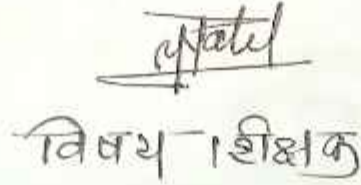 विषय शिक्षक